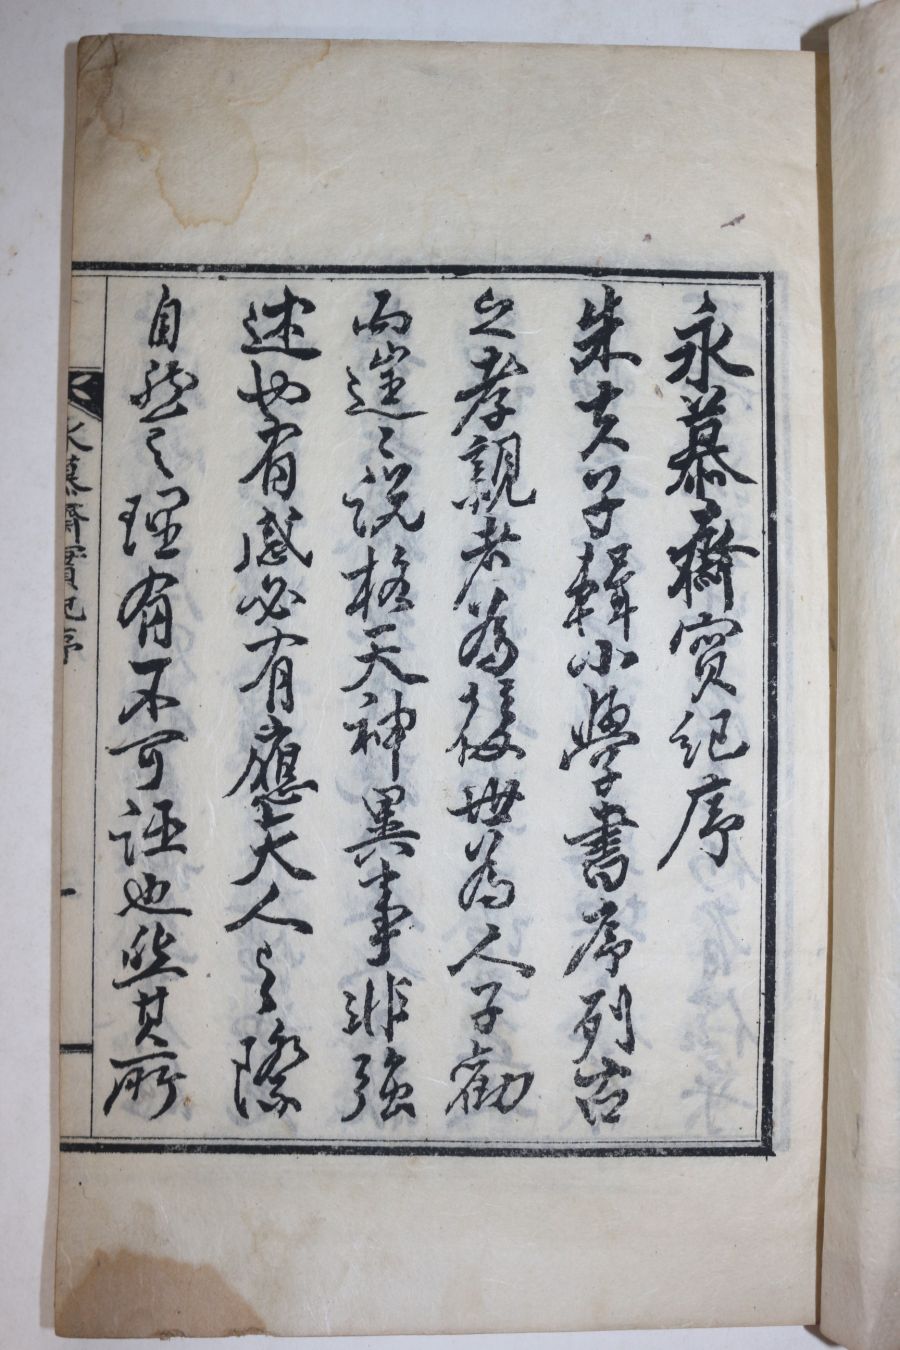 永慕齋實紀序
朱夫子輯小學書序列古
之孝親者為後世為人子勸
而往〻說格天神異事非強
述也有感必有應天人之際
自然之理有不可誣也然其所
永慕齋實紀序